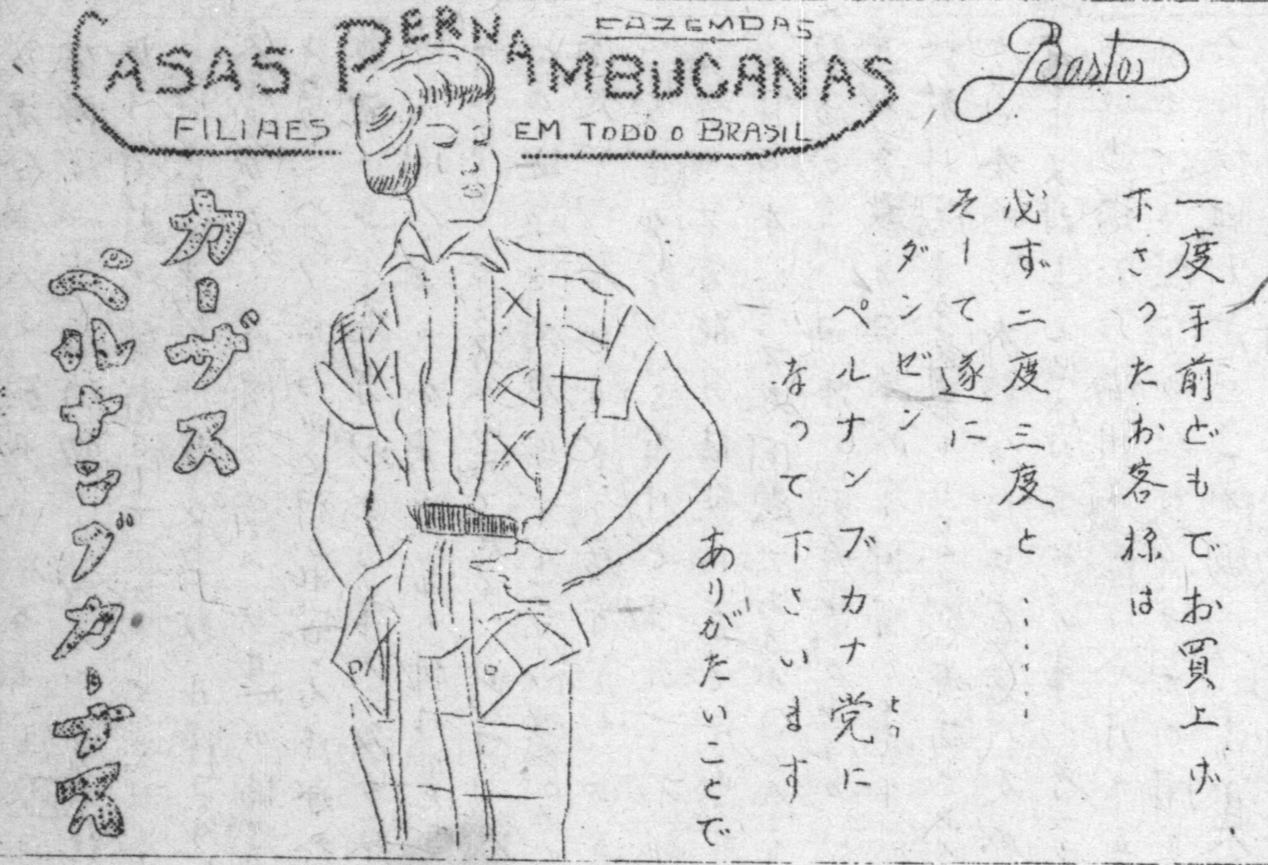 FAZEMDAS
CASAS PERNAMBUCANAS
FILIAES EM TODO O BRASIL
Bastos
一度手前どもでお買上げ
下さったお客様は
必ず二度三度と……
そーて遂に
ダンゼン
ペルナンブカナ党に
とう
なって下さいます
ありがたいことで
カーザス
ペルナンブカーナス